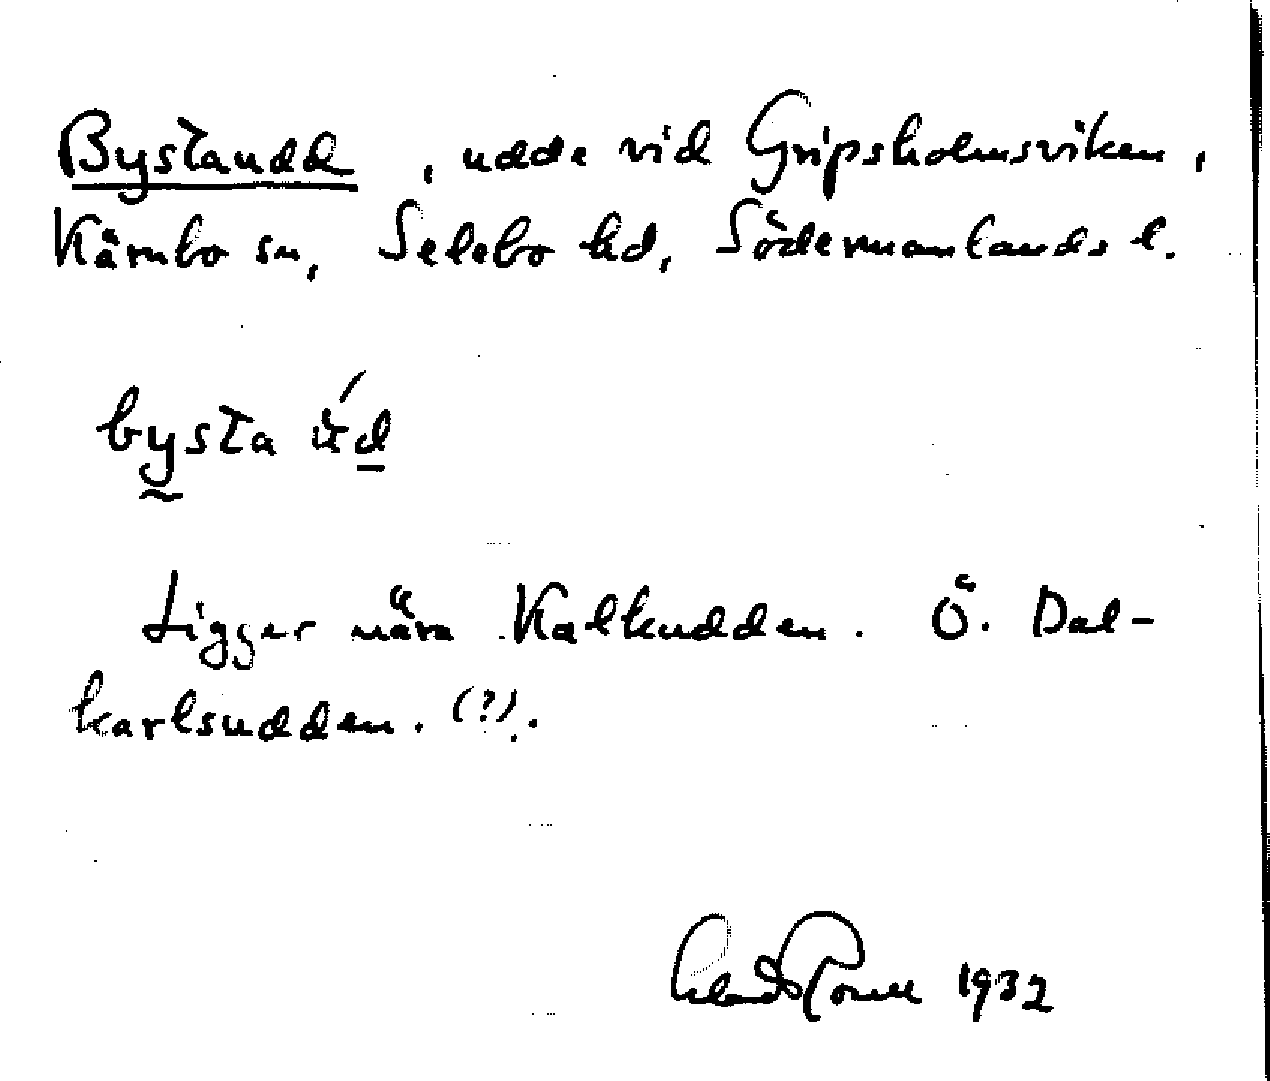 Bystaudd, udde vid Gripsholmsviken,
Kärnbo sn, Selebo hd, Södermanlands l.
bysta ú̆d
Ligger nära Kalkudden. Ö. Dal-
karlsudden. (?).
1932